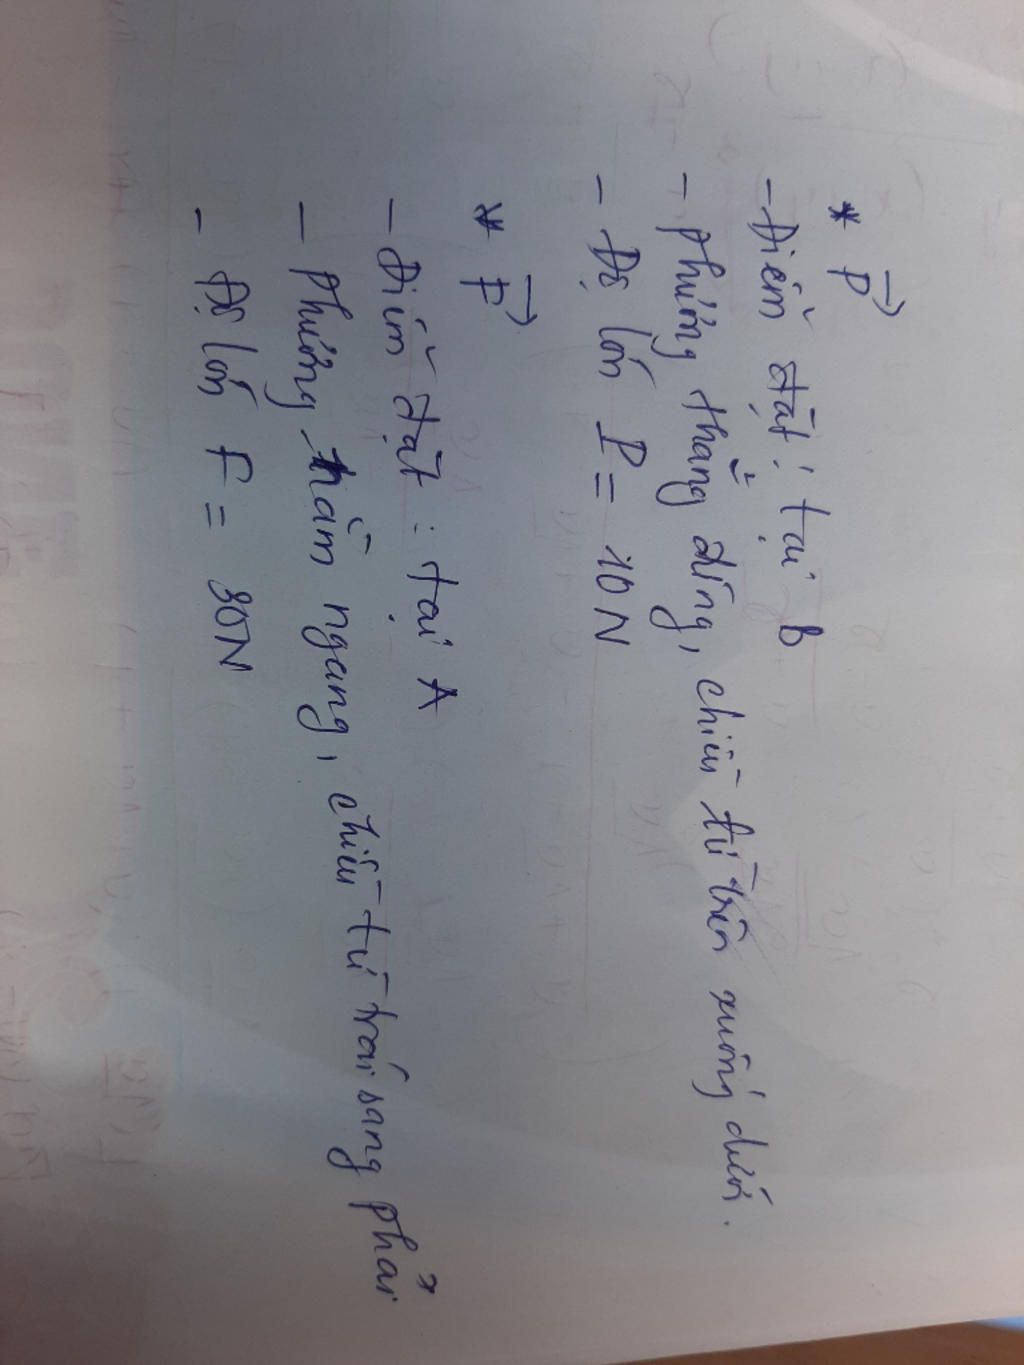 * P⃗
- Điểm đặt: tại B
- phương thẳng đứng, chiều từ trên xuống dưới.
- Độ lớn P = 10N
* F⃗
- Điểm đặt: tại A
- phương nằm ngang, chiều từ trái sang phải
- Độ lớn F = 30N